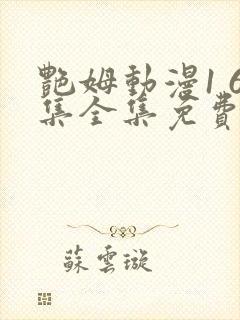 艷姆動漫1 6
集全集免費
蘇雲璇